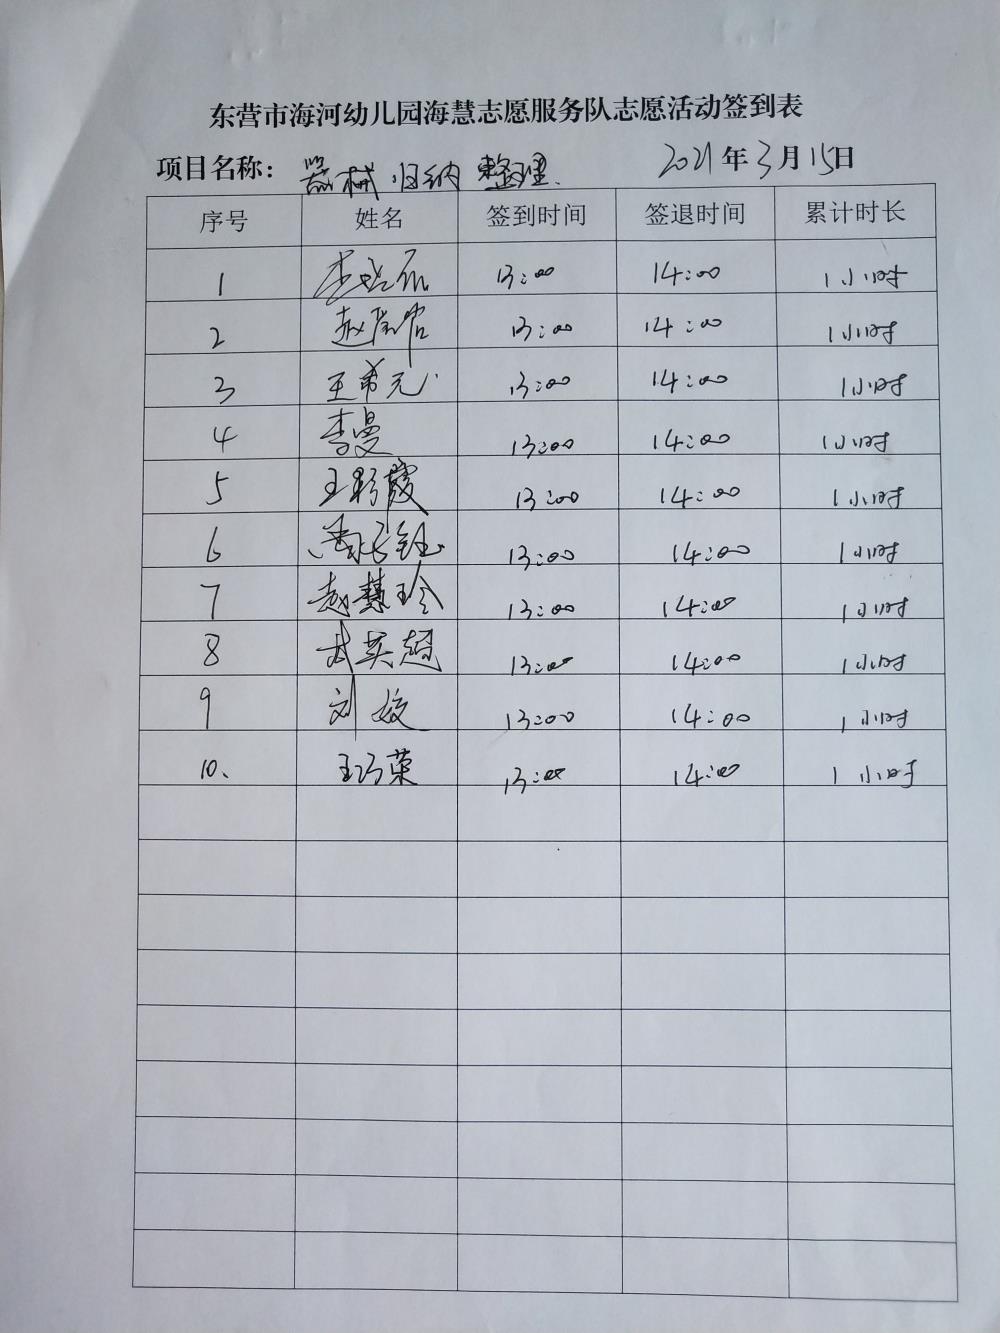 东营市海河幼儿园海慧志愿服务队志愿活动签到表
项目名称：器械归纳整理. 2021年3月15日
序号 姓名 签到时间 签退时间 累计时长
1 李 13:00 14:00 1小时
2 赵 13:00 14:00 1小时
3 王希元 13:00 14:00 1小时
4 李曼 13:00 14:00 1小时
5 王彩霞 13:00 14:00 1小时
6 13:00 14:00 1小时
7 赵慧玲 13:00 14:00 1小时
8 武英超 13:00 14:00 1小时
9 刘姣 13:00 14:00 1小时
10、 王巧荣 13:00 14:00 1小时